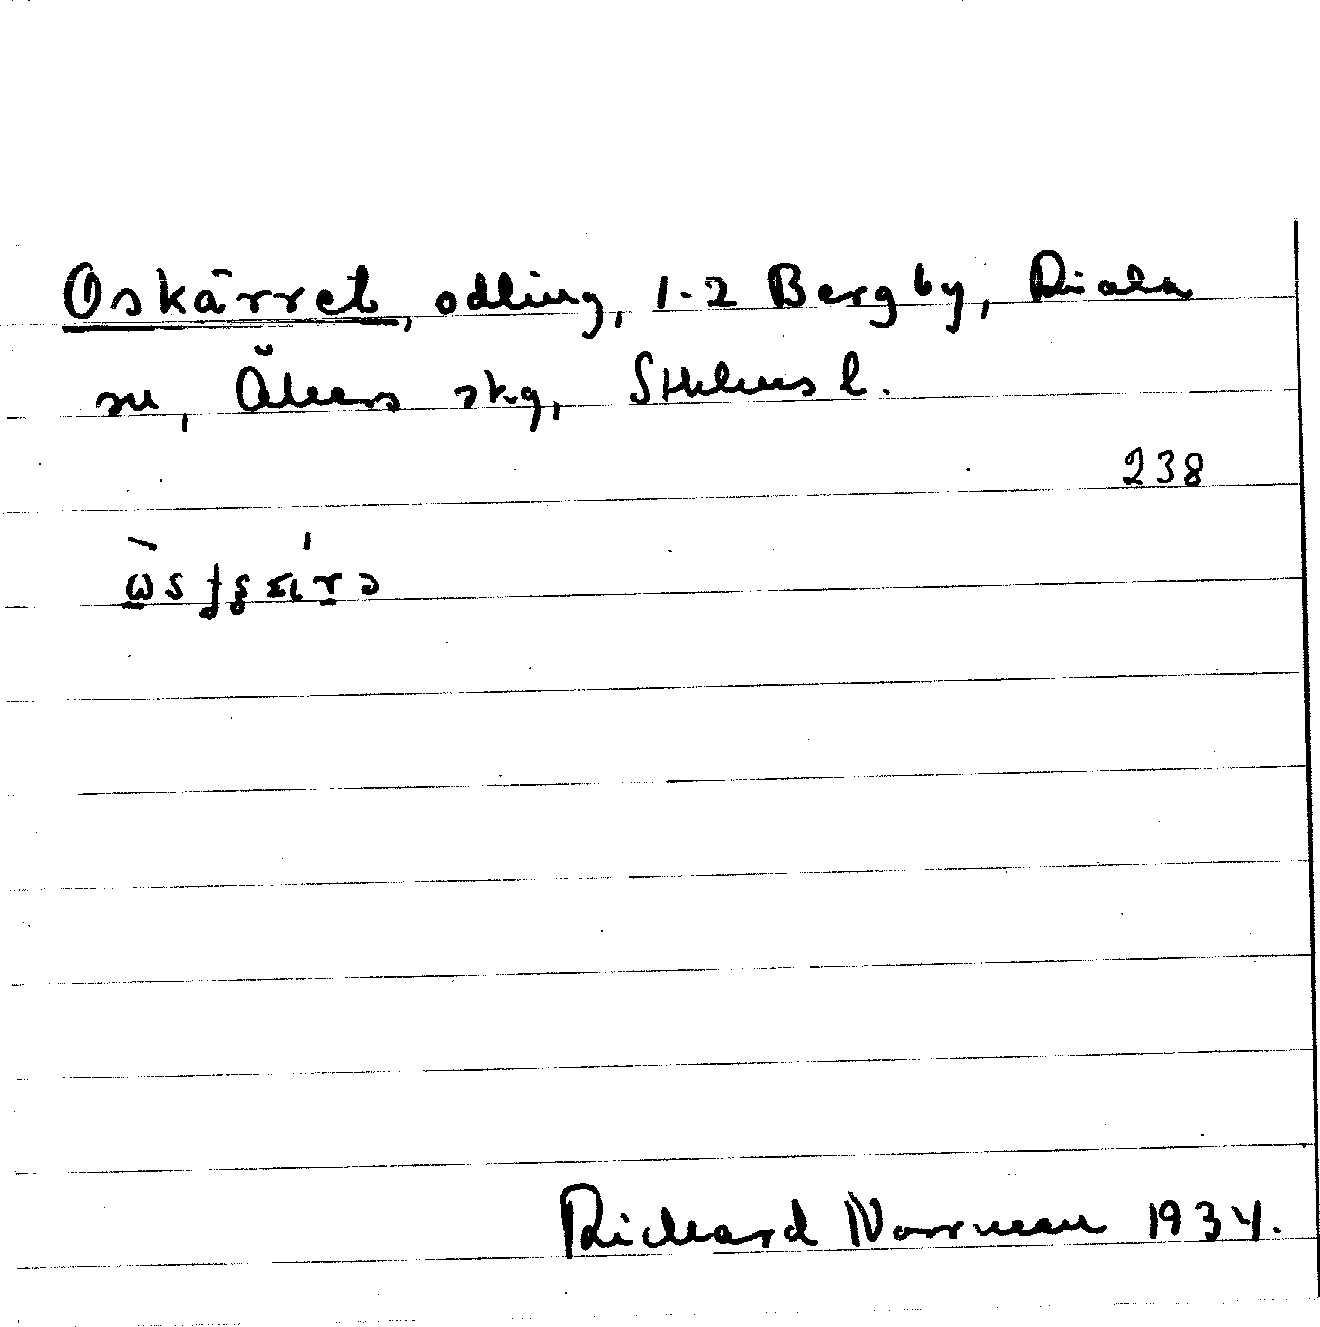 Oskärret, odling, 1-2 Bergby, Riala
sn, Åkers skg, Sthlms l.
238
Richard Norrman 1934.